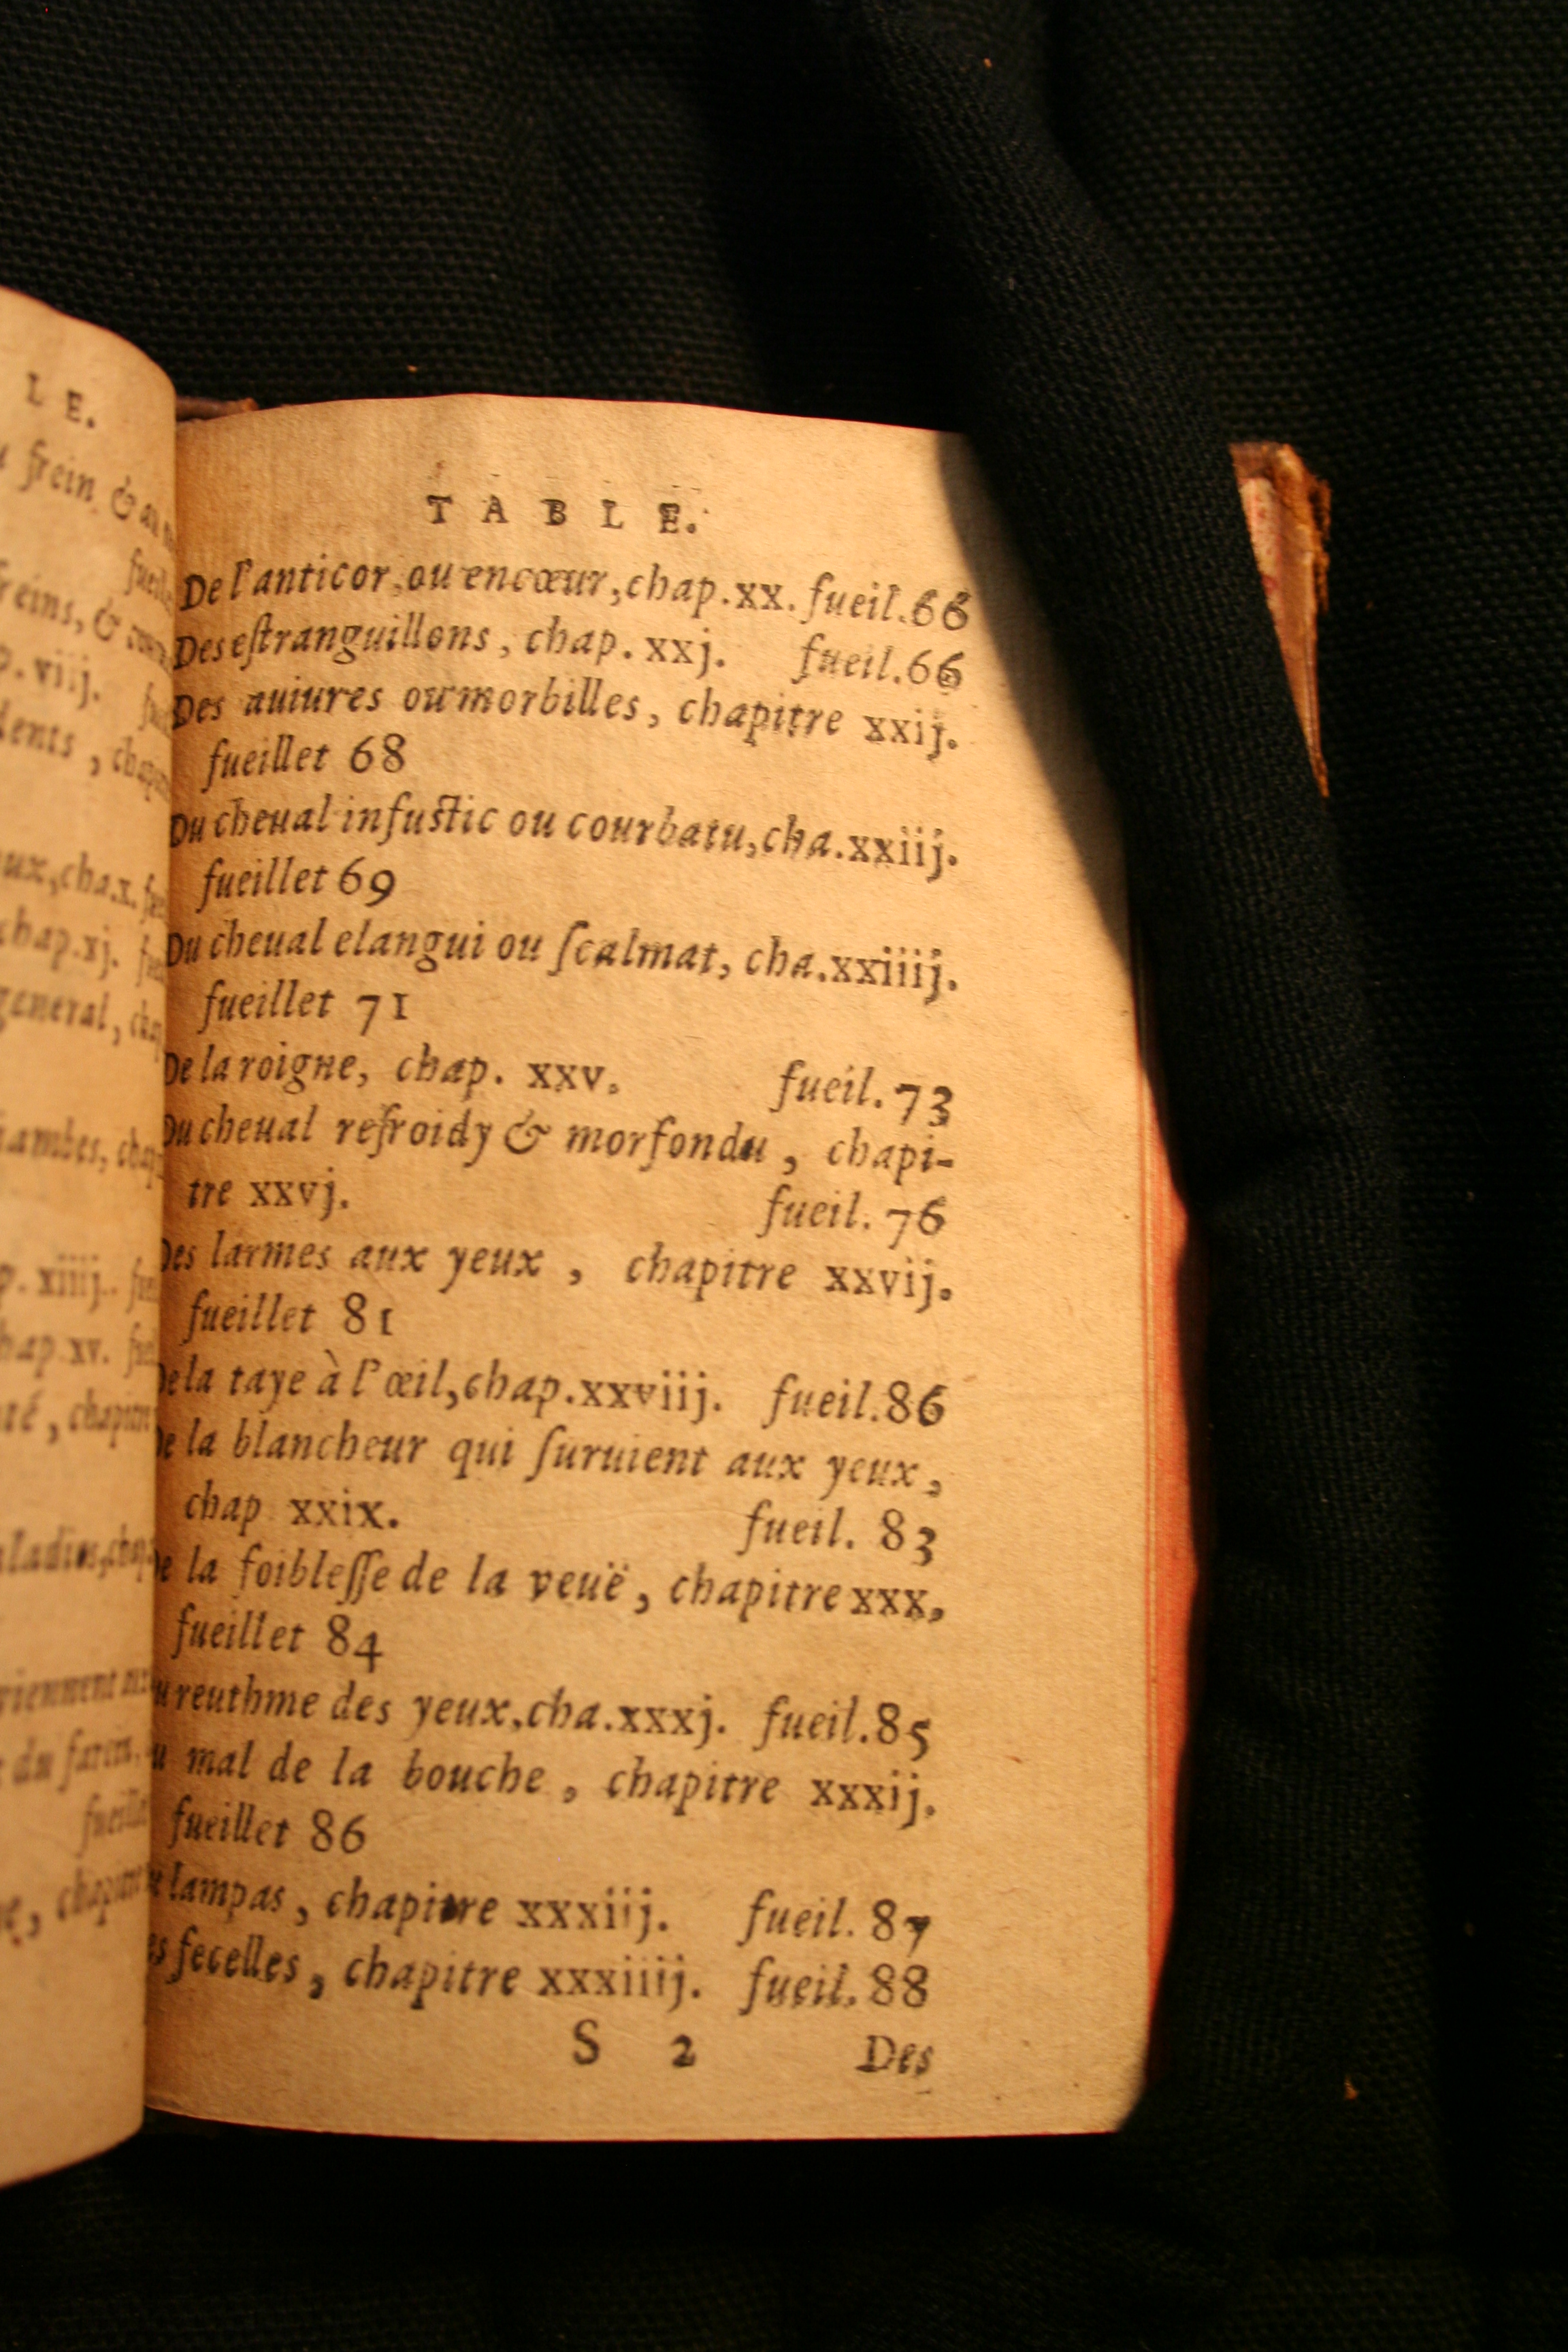 L E.
frein & au
fueil
freins, &
p. viij.
dents, chapi
aux, cha.x.
chap.xj.
general, cha
iambes, chap
p. xiiij.
chap.xv.
té, chapitre
ladies, chap.
viennent aux
du farcin.
fueillet
e, chapitre
TABLE.
De l'anticor, ou encœur, chap.xx. fueil.66
Des eſtranguillons, chap. xxj. fueil.66
Des auiures ou morbilles, chapitre xxij.
fueillet 68
Du cheual infuſtic ou courbatu, cha.xxiij.
fueillet 69
Du cheual elangui ou ſcalmat, cha.xxiiij.
fueillet 71
De la roigne, chap. xxv. fueil. 73
Du cheual refroidy & morfondu, chapi-
tre xxvj. fueil. 76
Des larmes aux yeux, chapitre xxvij.
fueillet 81
De la taye à l'œil, chap.xxviij. fueil.86
De la blancheur qui ſuruient aux yeux,
chap xxix. fueil. 83
De la foibleſſe de la veuë, chapitre xxx,
fueillet 84
u reuthme des yeux, cha.xxxj. fueil.85
u mal de la bouche, chapitre xxxij.
fueillet 86
e lampas, chapitre xxxiij. fueil. 87
es fecelles, chapitre xxxiiij. fueil. 88
S 2 Des